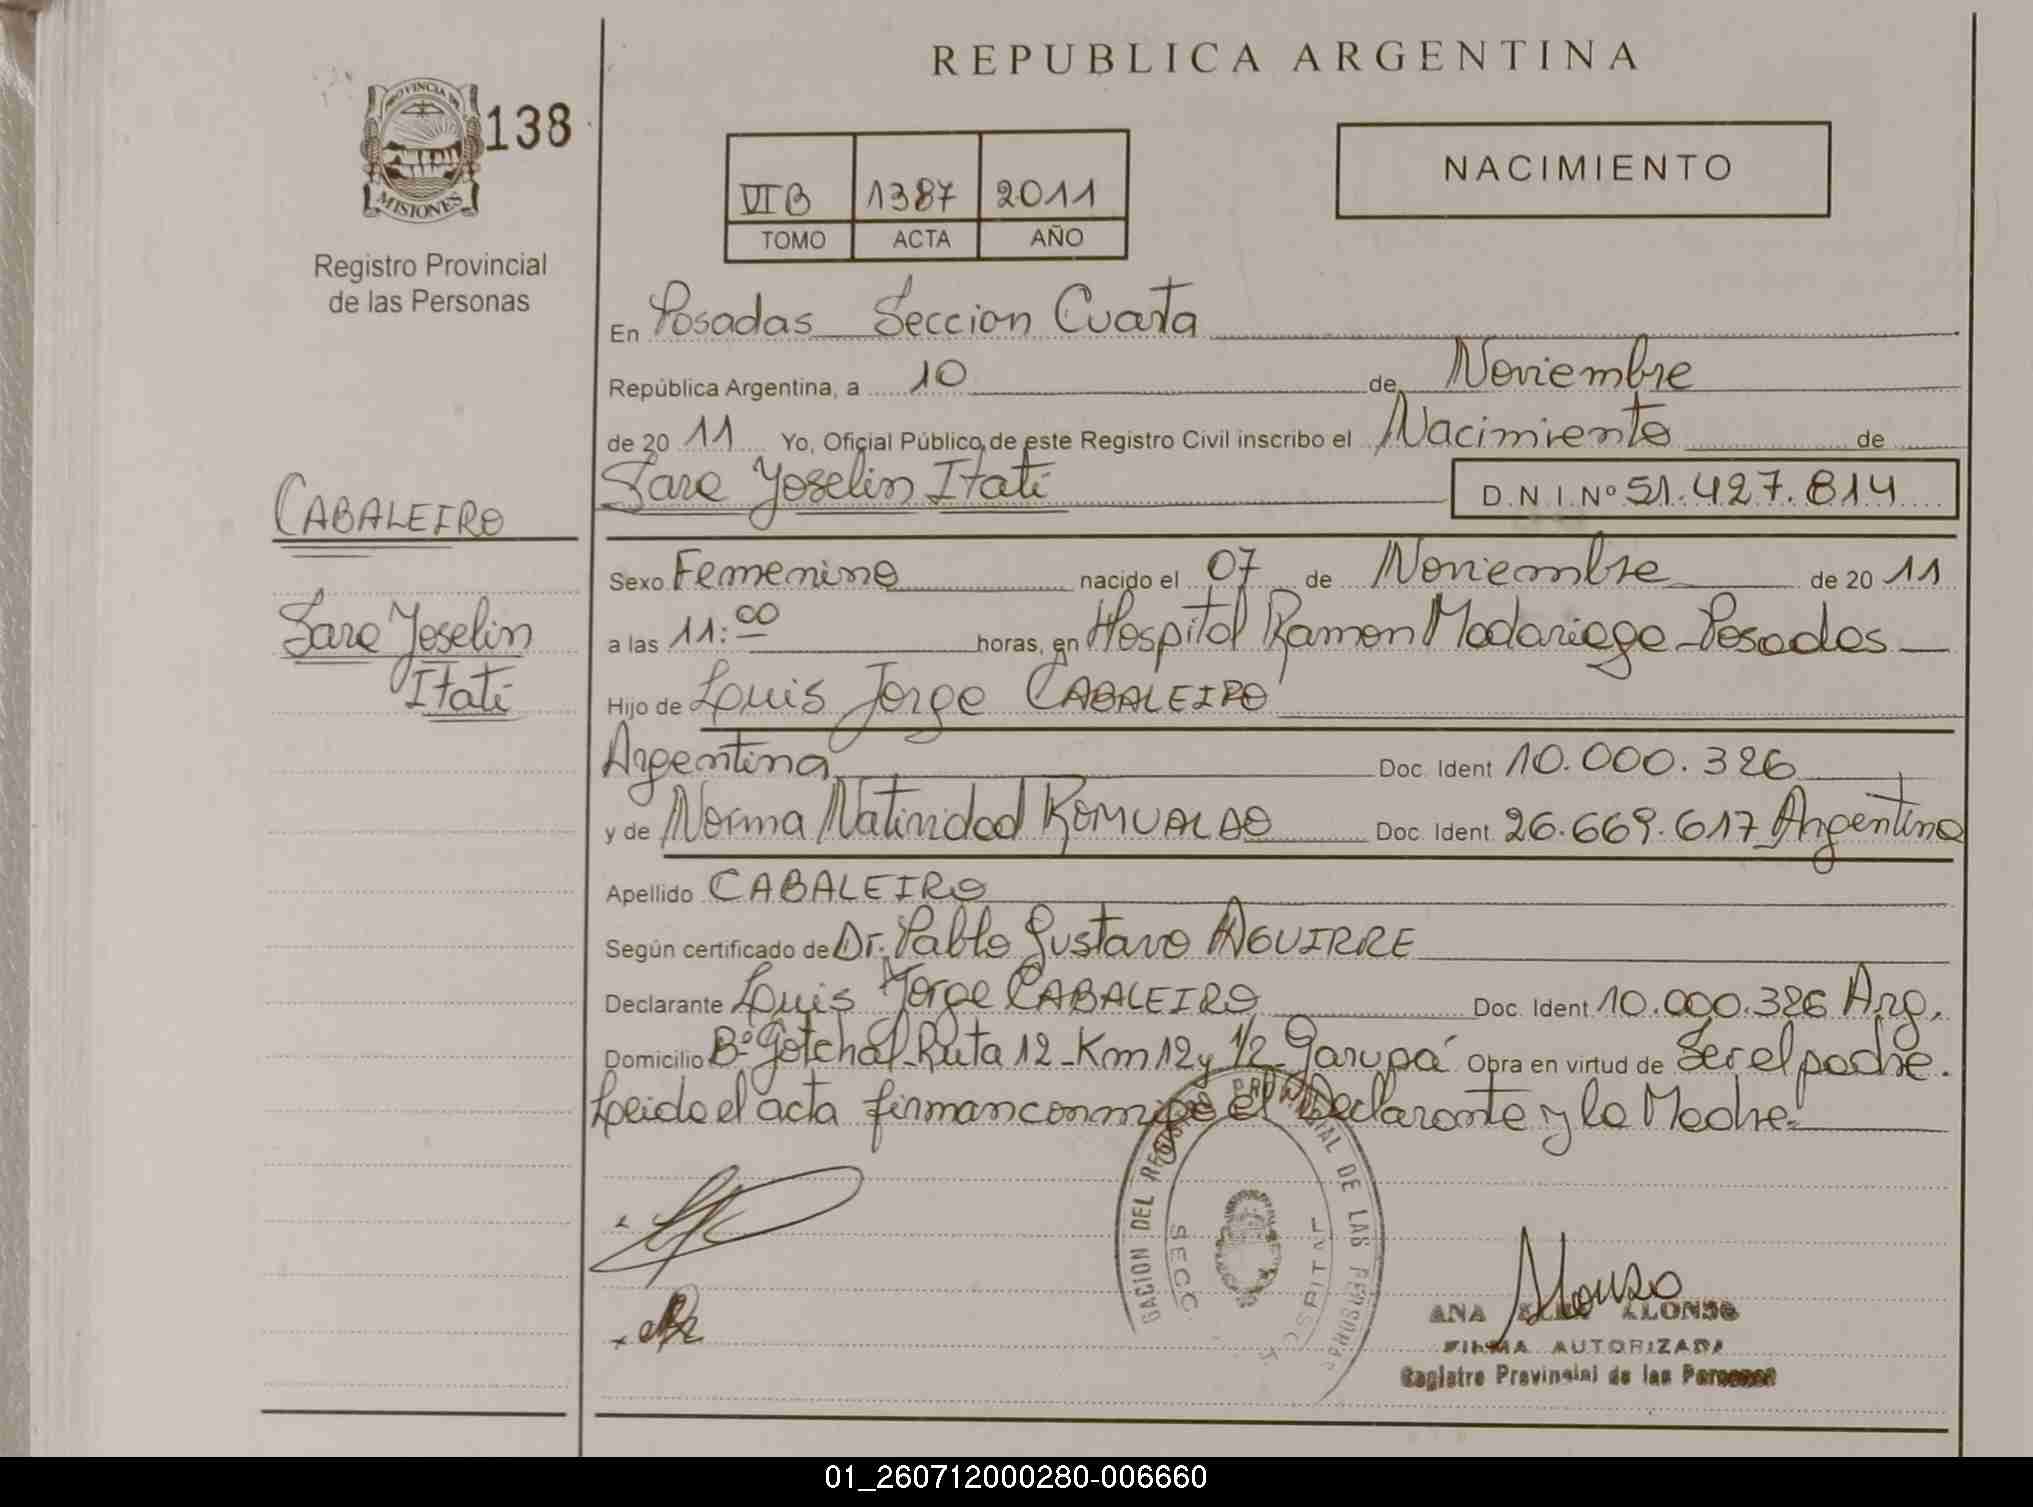 REPUBLICA ARGENTINA
PROVINCIA DE
MISIONES
138
Registro Provincial
de las Personas
VI B 1387 2011
TOMO ACTA AÑO
NACIMIENTO
En Posadas Seccion Cuarta
República Argentina, a 10 de Noviembre
de 20 11 Yo, Oficial Público de este Registro Civil inscribo el Nacimiento de
Sara Yoselin Itatí D.N.I. Nº 51.427.814
CABALEIRO
Sara Yoselin
Itatí
Sexo Femenino nacido el 07 de Noviembre de 20 11
a las 11:00 horas, en Hospital Ramon Madariaga - Posadas
Hijo de Luis Jorge CABALEIRO
Argentina Doc. Ident 10.000.326
y de Norma Natividad ROMUALDO Doc. Ident. 26.669.617 Argentina
Apellido CABALEIRO
Según certificado de Dr. Pablo Gustavo AGUIRRE
Declarante Luis Jorge CABALEIRO Doc. Ident 10.000.326 Arg.
Domicilio Bº Gotchal - Ruta 12 - Km 12 y 1/2 - Garupá Obra en virtud de Ser el padre.
Leido el acta firman conmigo el Declarante y la Madre.
DEL REGISTRO PROVINCIAL DE LAS PERSONAS
SECC. HOSPITAL
Alonso
ANA ALONSO
FIRMA AUTORIZADA
Registro Provincial de las Personas
01_260712000280-006660